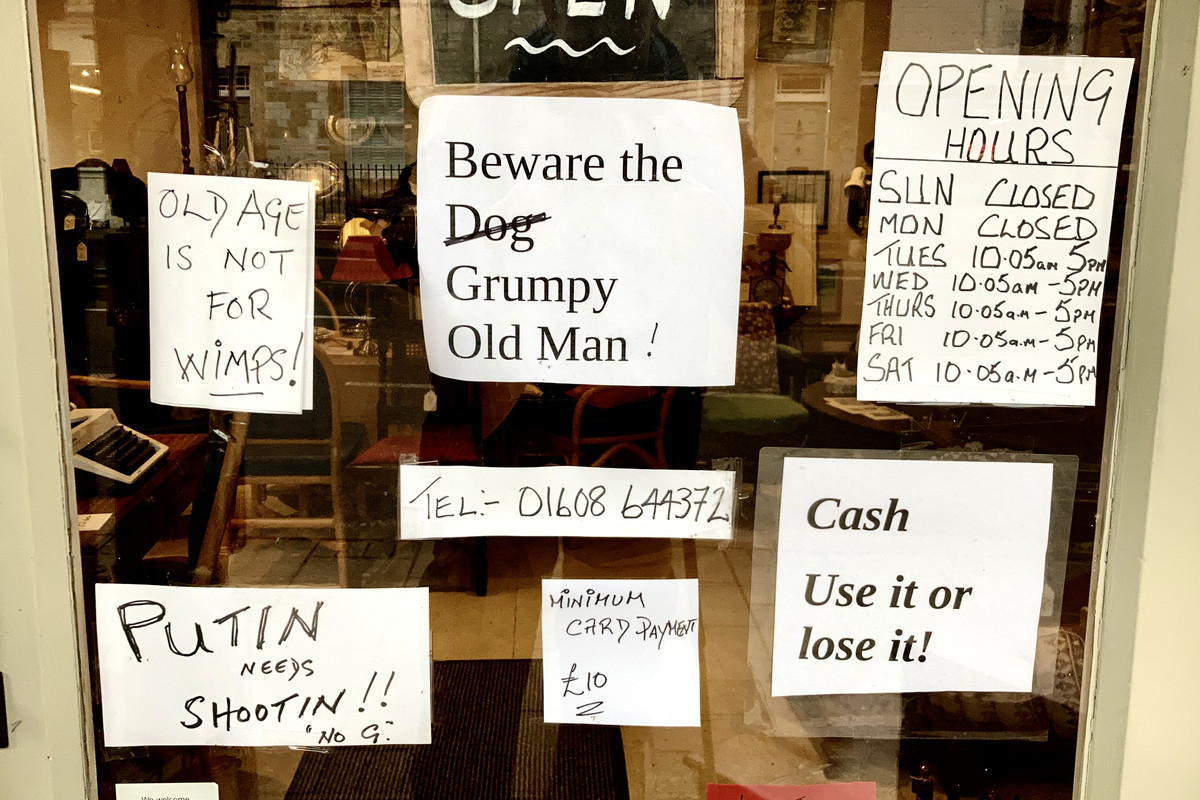 OPEN
OLD AGE
IS NOT
FOR
WIMPS!
Beware the
Dog
Grumpy
Old Man !
OPENING
HOURS
SUN CLOSED
MON CLOSED
TUES 10.05am 5PM
WED 10.05am - 5PM
THURS 10.05a.m - 5PM
FRI 10.05a.m - 5PM
SAT 10.05a.m - 5PM
TEL:- 01608 644372
Cash
Use it or
lose it!
PUTIN
NEEDS
SHOOTIN!!
"NO G."
MINIMUM
CARD PAYMENT
£10
We welcome